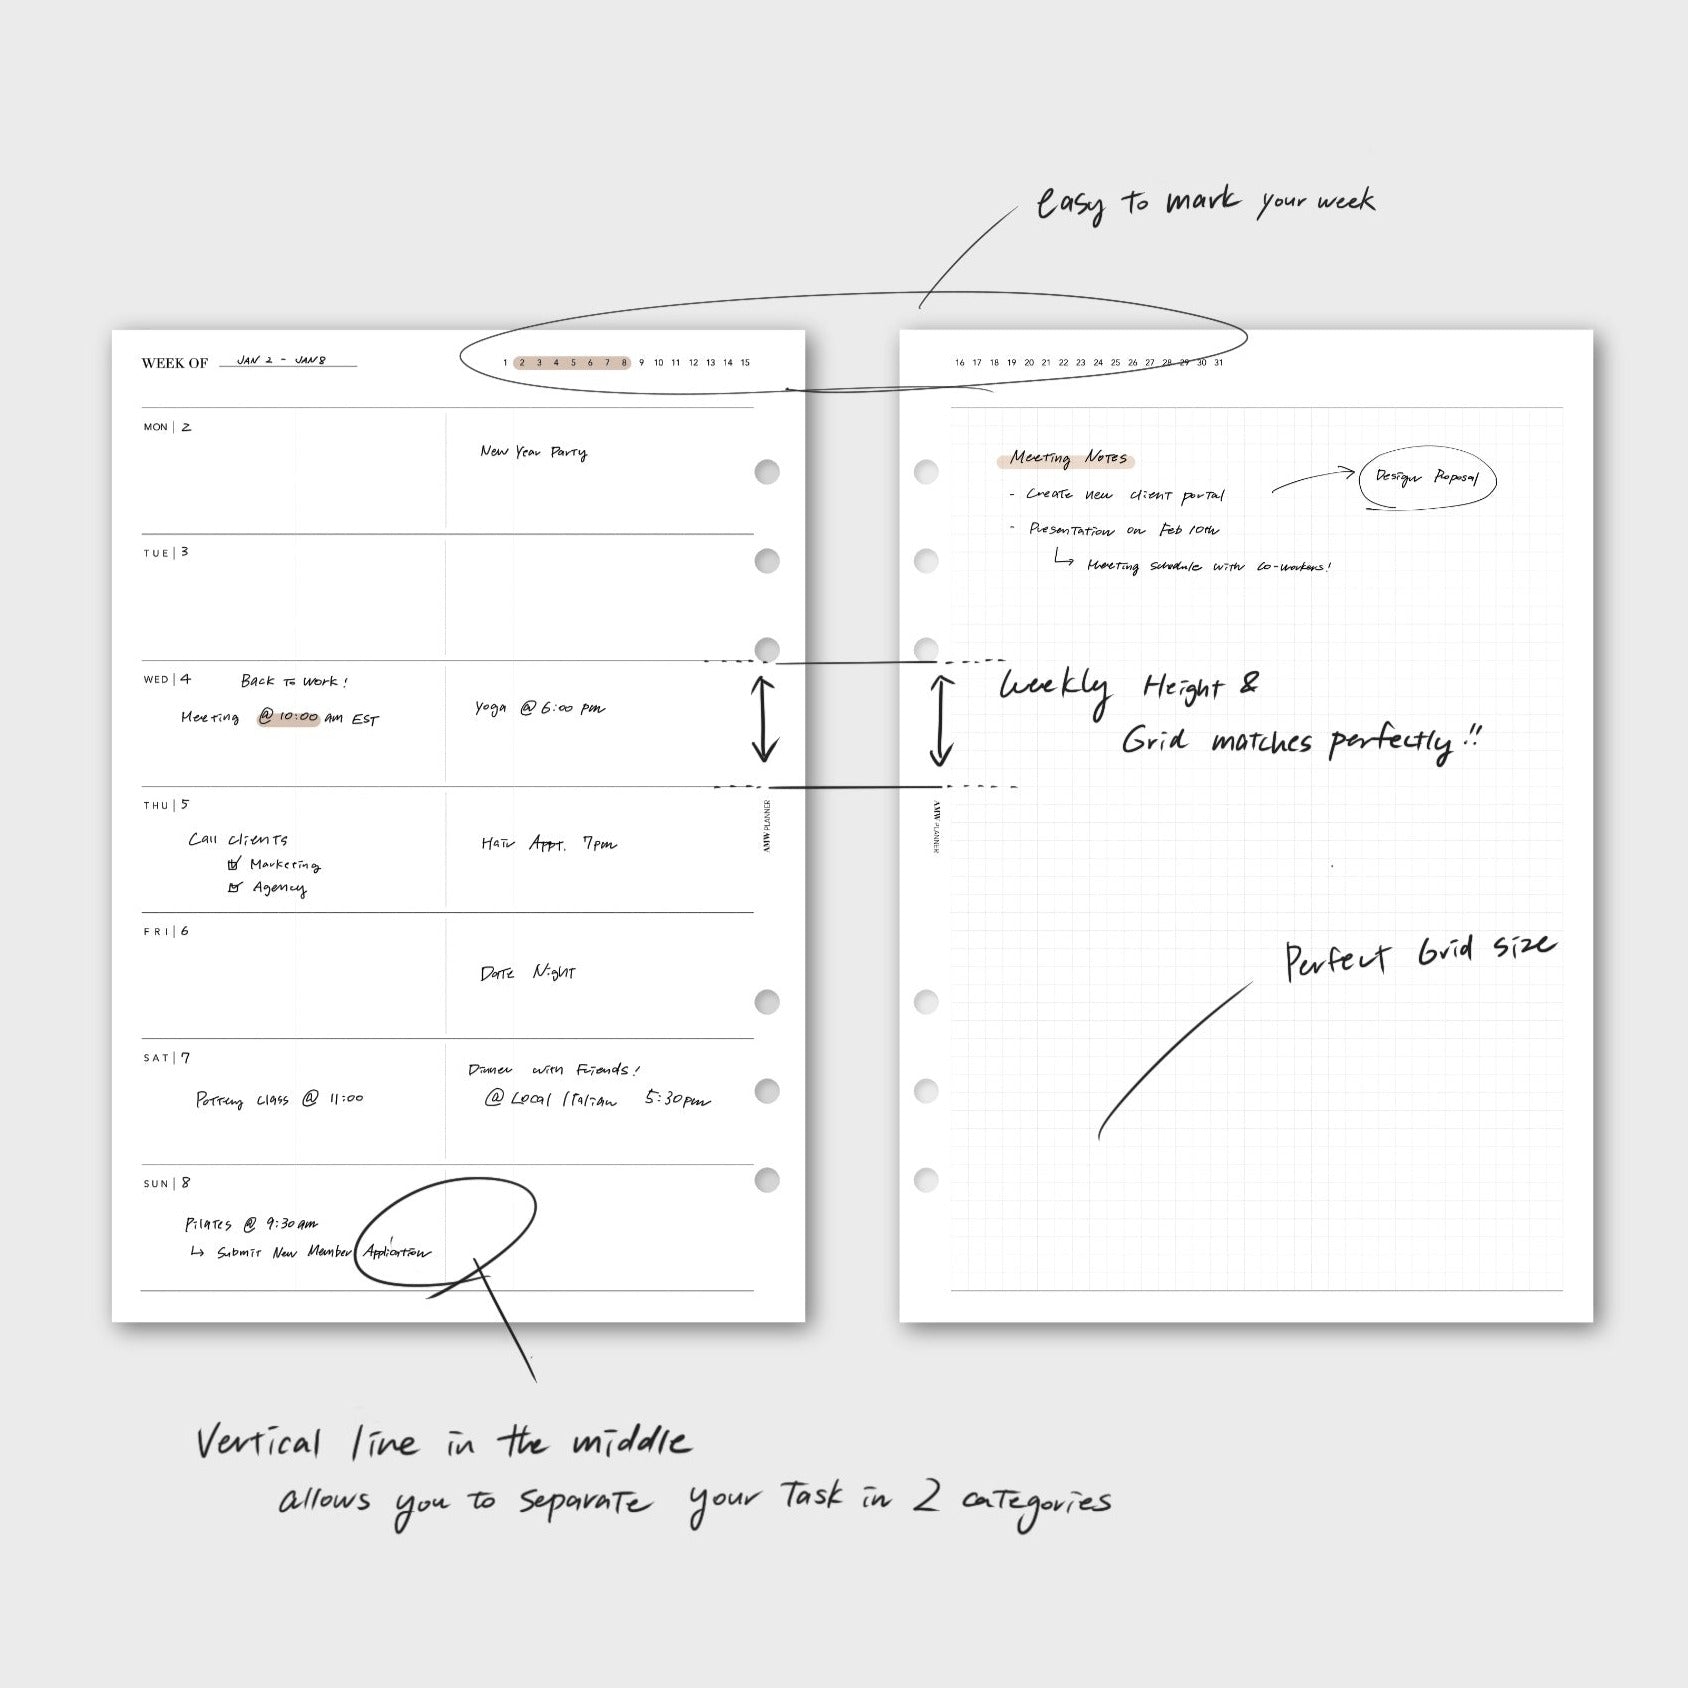 easy to mark your week
WEEK OF JAN 2 - JAN 8
1 2 3 4 5 6 7 8 9 10 11 12 13 14 15
MON | 2
New Year Party
TUE | 3
WED | 4 Back to work!
Meeting @ 10:00 am EST
Yoga @ 6:00 pm
THU | 5
Call clients
Marketing
Agency
Hair Appt. 7pm
FRI | 6
Date Night
SAT | 7
Pottery class @ 11:00
Dinner with Friends!
@ Local Italian 5:30pm
SUN | 8
Pilates @ 9:30am
↳ Submit New Member Application
AMW PLANNER
16 17 18 19 20 21 22 23 24 25 26 27 28 29 30 31
Meeting Notes
- Create new client portal
Design Proposal
- Presentation on Feb 10th
↳ Meeting schedule with co-workers!
Weekly Height &
Grid matches perfectly!!
AMW PLANNER
Perfect Grid size
Vertical line in the middle
allows you to separate your task in 2 categories